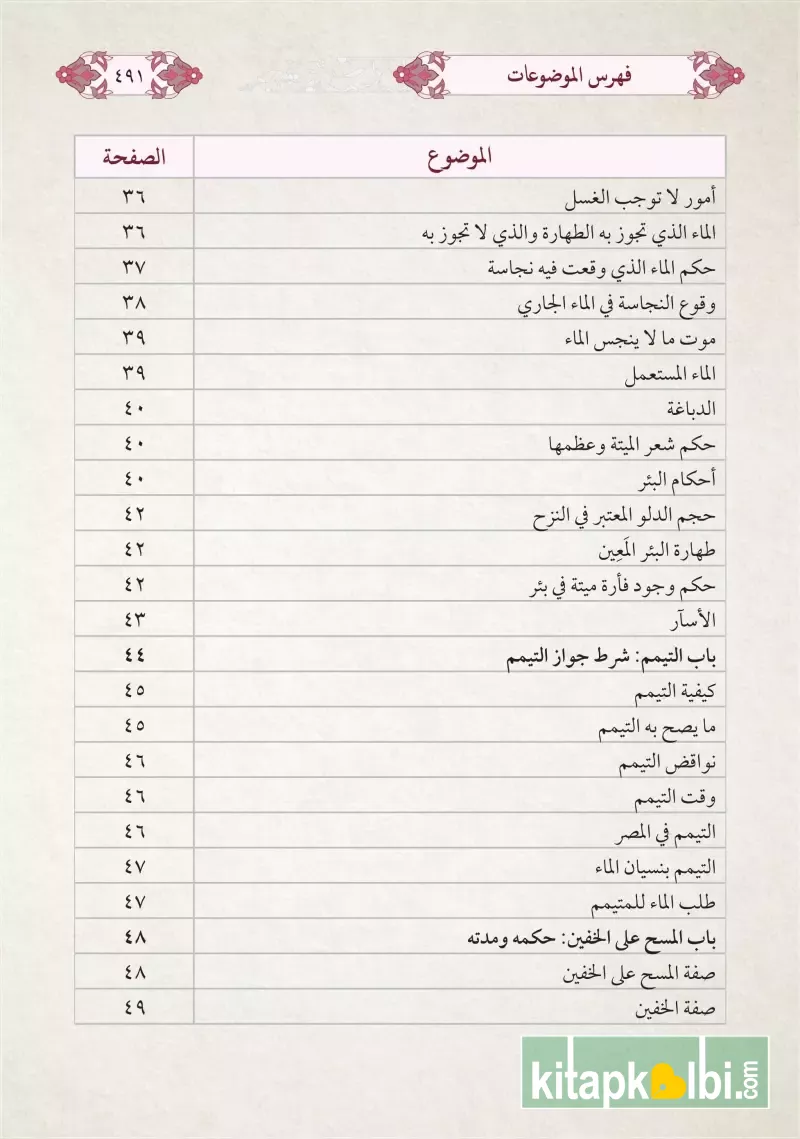 فهرس الموضوعات ٤٩١
الموضوع الصفحة
أمور لا توجب الغسل ٣٦
الماء الذي تجوز به الطهارة والذي لا تجوز به ٣٦
حكم الماء الذي وقعت فيه نجاسة ٣٧
وقوع النجاسة في الماء الجاري ٣٨
موت ما لا ينجس الماء ٣٩
الماء المستعمل ٣٩
الدباغة ٤٠
حكم شعر الميتة وعظمها ٤٠
أحكام البئر ٤٠
حجم الدلو المعتبر في النزح ٤٢
طهارة البئر المَعِين ٤٢
حكم وجود فأرة ميتة في بئر ٤٢
الأسآر ٤٣
باب التيمم: شرط جواز التيمم ٤٤
كيفية التيمم ٤٥
ما يصح به التيمم ٤٥
نواقض التيمم ٤٦
وقت التيمم ٤٦
التيمم في المصر ٤٦
التيمم بنسيان الماء ٤٧
طلب الماء للمتيمم ٤٧
باب المسح على الخفين: حكمه ومدته ٤٨
صفة المسح على الخفين ٤٨
صفة الخفين ٤٩
kitapkalbi.com